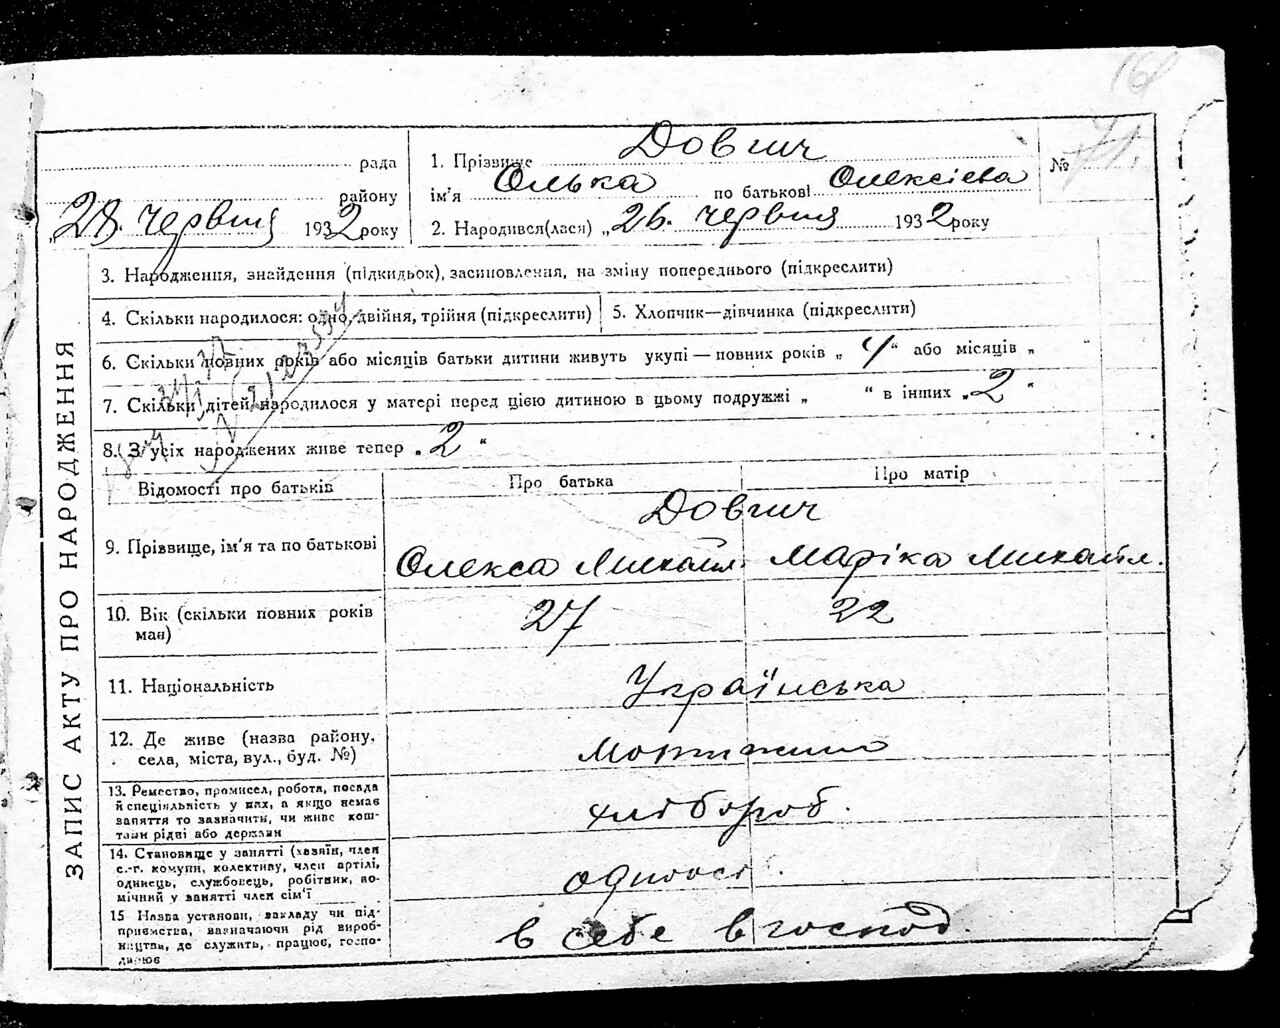 71.
рада
району
"28. червня 1932 року
1. Прізвище Довгич
ім'я Олька по батькові Олексієва
2. Народився(лася) "26. червня 1932 року
№
3. Народження, знайдення (підкидьок), засиновлення, на зміну попереднього (підкреслити)
4. Скільки народилося: одно, двійня, трійня (підкреслити)
5. Хлопчик—дівчинка (підкреслити)
6. Скільки повних років або місяців батьки дитини живуть укупі — повних років „ 4 “ або місяців „
7. Скільки дітей народилося у матері перед цією дитиною в цьому подружжі „ “ в інших „ 2 “
8. З усіх народжених живе тепер „ 2 “
Відомості про батьків
Про батька
Про матір
Довгич
9. Прізвище, ім'я та по батькові
Олекса Михайл. Маріка Михайл.
10. Вік (скільки повних років
має)
27
22
11. Національність
Українська
12. Де живе (назва району,
села, міста, вул., буд. №)
13. Ремество, промисел, робота, посада
й спеціяльність у них, а якщо немає
заняття то зазначити, чи живе кош-
тами рідні або держави
хлібороб.
14. Становище у занятті (хазяїн, член
с.-г. комуни, колективу, член артілі,
одинець, службовець, робітник, по-
мічний у занятті член сім'ї
одноос.
15 Назва установи, закладу чи під-
приємства, зазначаючи рід вироб-
ництва, де служить, працює, госпо-
дарює
в себе в господ.
ЗАПИС АКТУ ПРО НАРОДЖЕННЯ